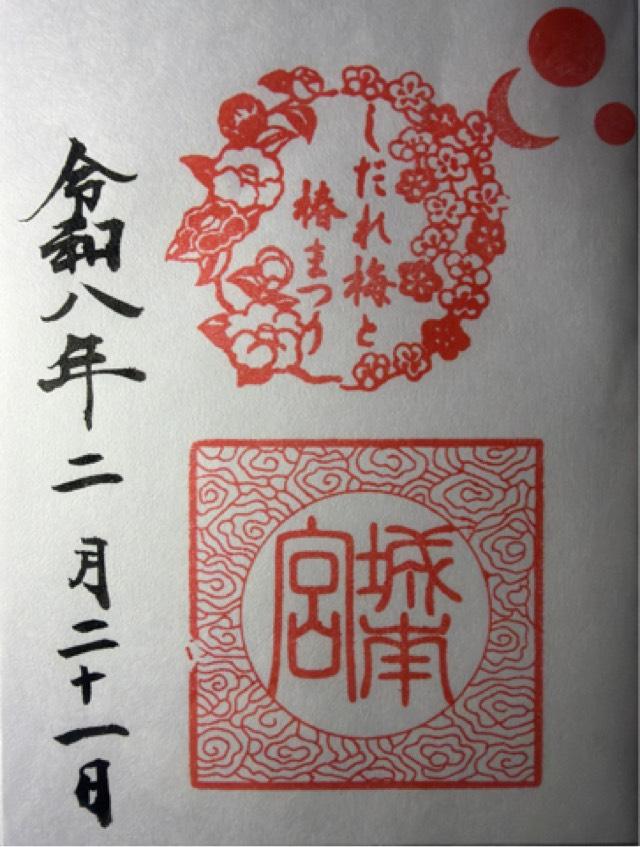 しだれ梅と
椿まつり
城南
宮
令和八年二月二十一日